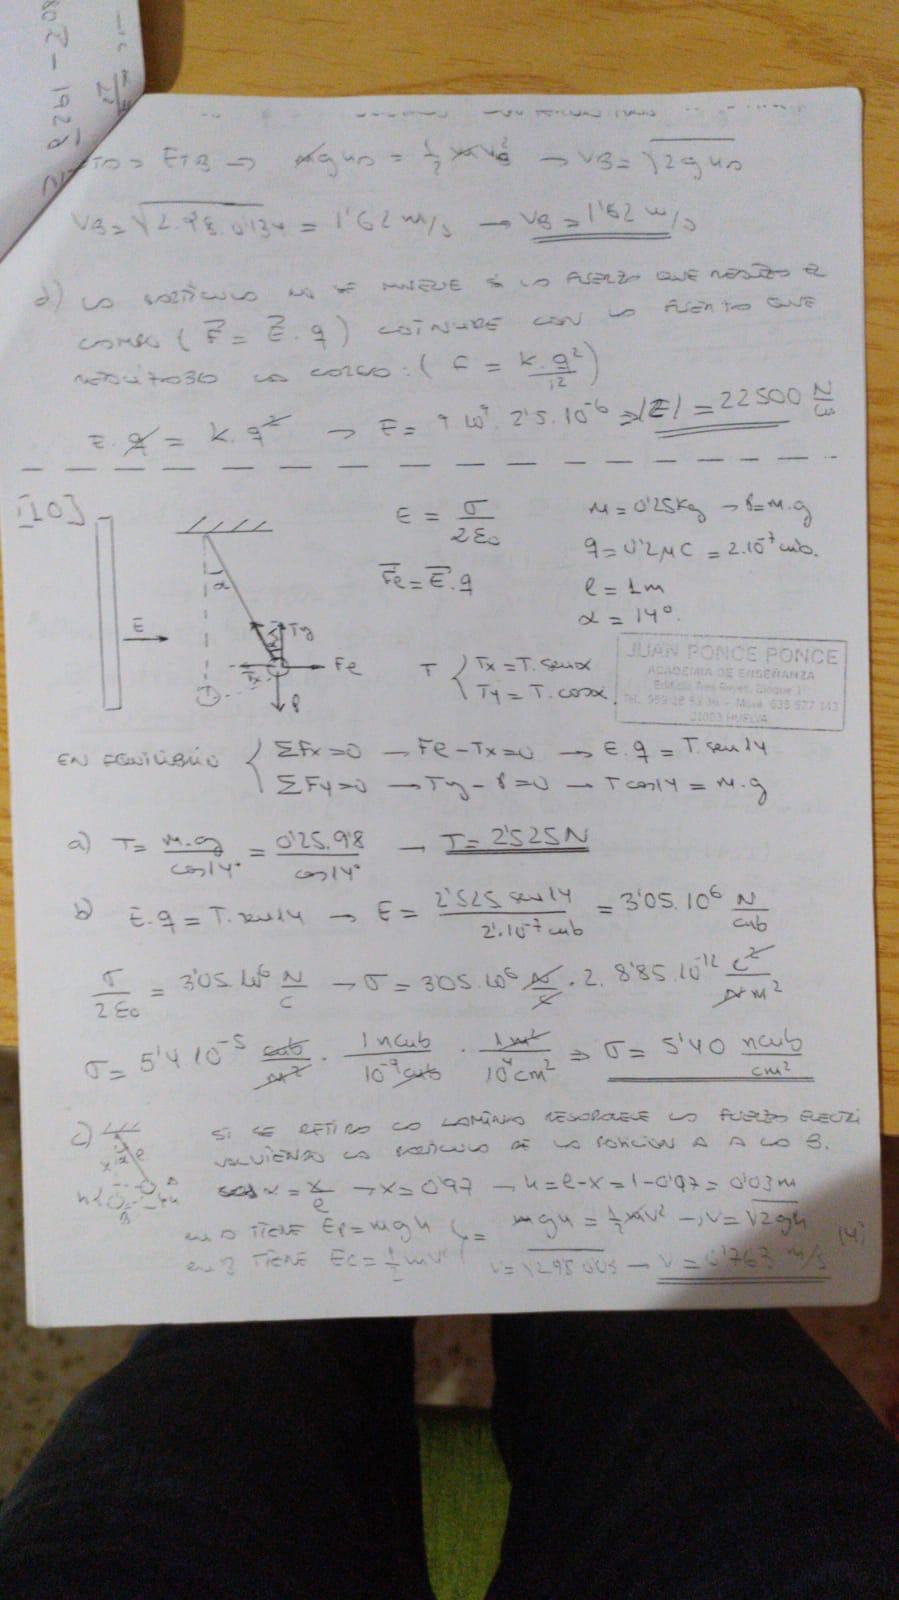 ETB → mgh = ½ mv_B² → V_B = √2gh
V_B = √2·9'8·0'134 = 1'62 m/s → V_B = 1'62 m/s
d) LA PARTÍCULA NO SE MUEVE SI LA FUERZA QUE REALIZA EL
CAMPO ( F⃗ = E⃗·q ) COINCIDE CON LA FUERZA QUE
LA CARGA: ( F = K·q²/1² )
E·q = K·q² → E = 9·10⁹·2'5·10⁻⁶ ⇒ |E| = 22500 N/C
[10]
E = σ/2ε₀
M = 0'25Kg → P = M·g
F⃗e = E⃗·q
q = 0'2μC = 2·10⁻⁷ cub.
l = 1m
α = 14º.
α
E
Ty
Tx
Fe
P
T { Tx = T·senα
Ty = T·cosα
JUAN PONCE PONCE
ACADEMIA DE ENSEÑANZA
Edificio Tres Reyes, Bloque 1
21003 HUELVA
EN EQUILIBRIO { ΣFx=0 → Fe-Tx=0 → E·q = T·sen14
ΣFy=0 → Ty-P=0 → Tcos14 = M·g
a) T = M·g/cos14º = 0'25·9'8/cos14º → T = 2'525N
b) E·q = T·sen14 → E = 2'525 sen14/2·10⁻⁷ cub = 3'05·10⁶ N/cub
σ/2ε₀ = 3'05·10⁶ N/C → σ = 3'05·10⁶ N/C · 2·8'85·10⁻¹² C²/Nm²
σ = 5'4 10⁻⁵ cub/m² · 1ncub/10⁻⁹cub · 1m²/10⁴cm² ⇒ σ = 5'40 ncub/cm²
c)
SI SE RETIRA LA LÁMINA LA FUERZA
VOLVIENDO LA PARTÍCULA DE LA POSICIÓN A A LA B.
cos α = x/l → x = 0'97 → h = l-x = 1-0'97 = 0'03m
EN A TIENE Ep = mgh } = mgh = ½mv² → v = √2gh
EN B TIENE Ec = ½mv² v = √2·9'8·0'03 → v = 0'763 m/s
(4)